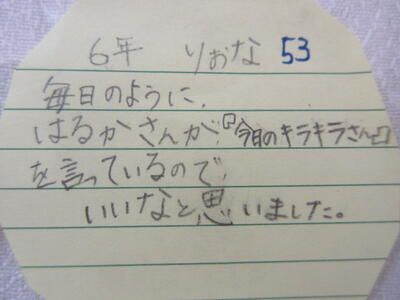 6年 りおな 53
毎日のように、
はるかさんが、『今日のキラキラさん』
を言っているので、
いいなと思いました。